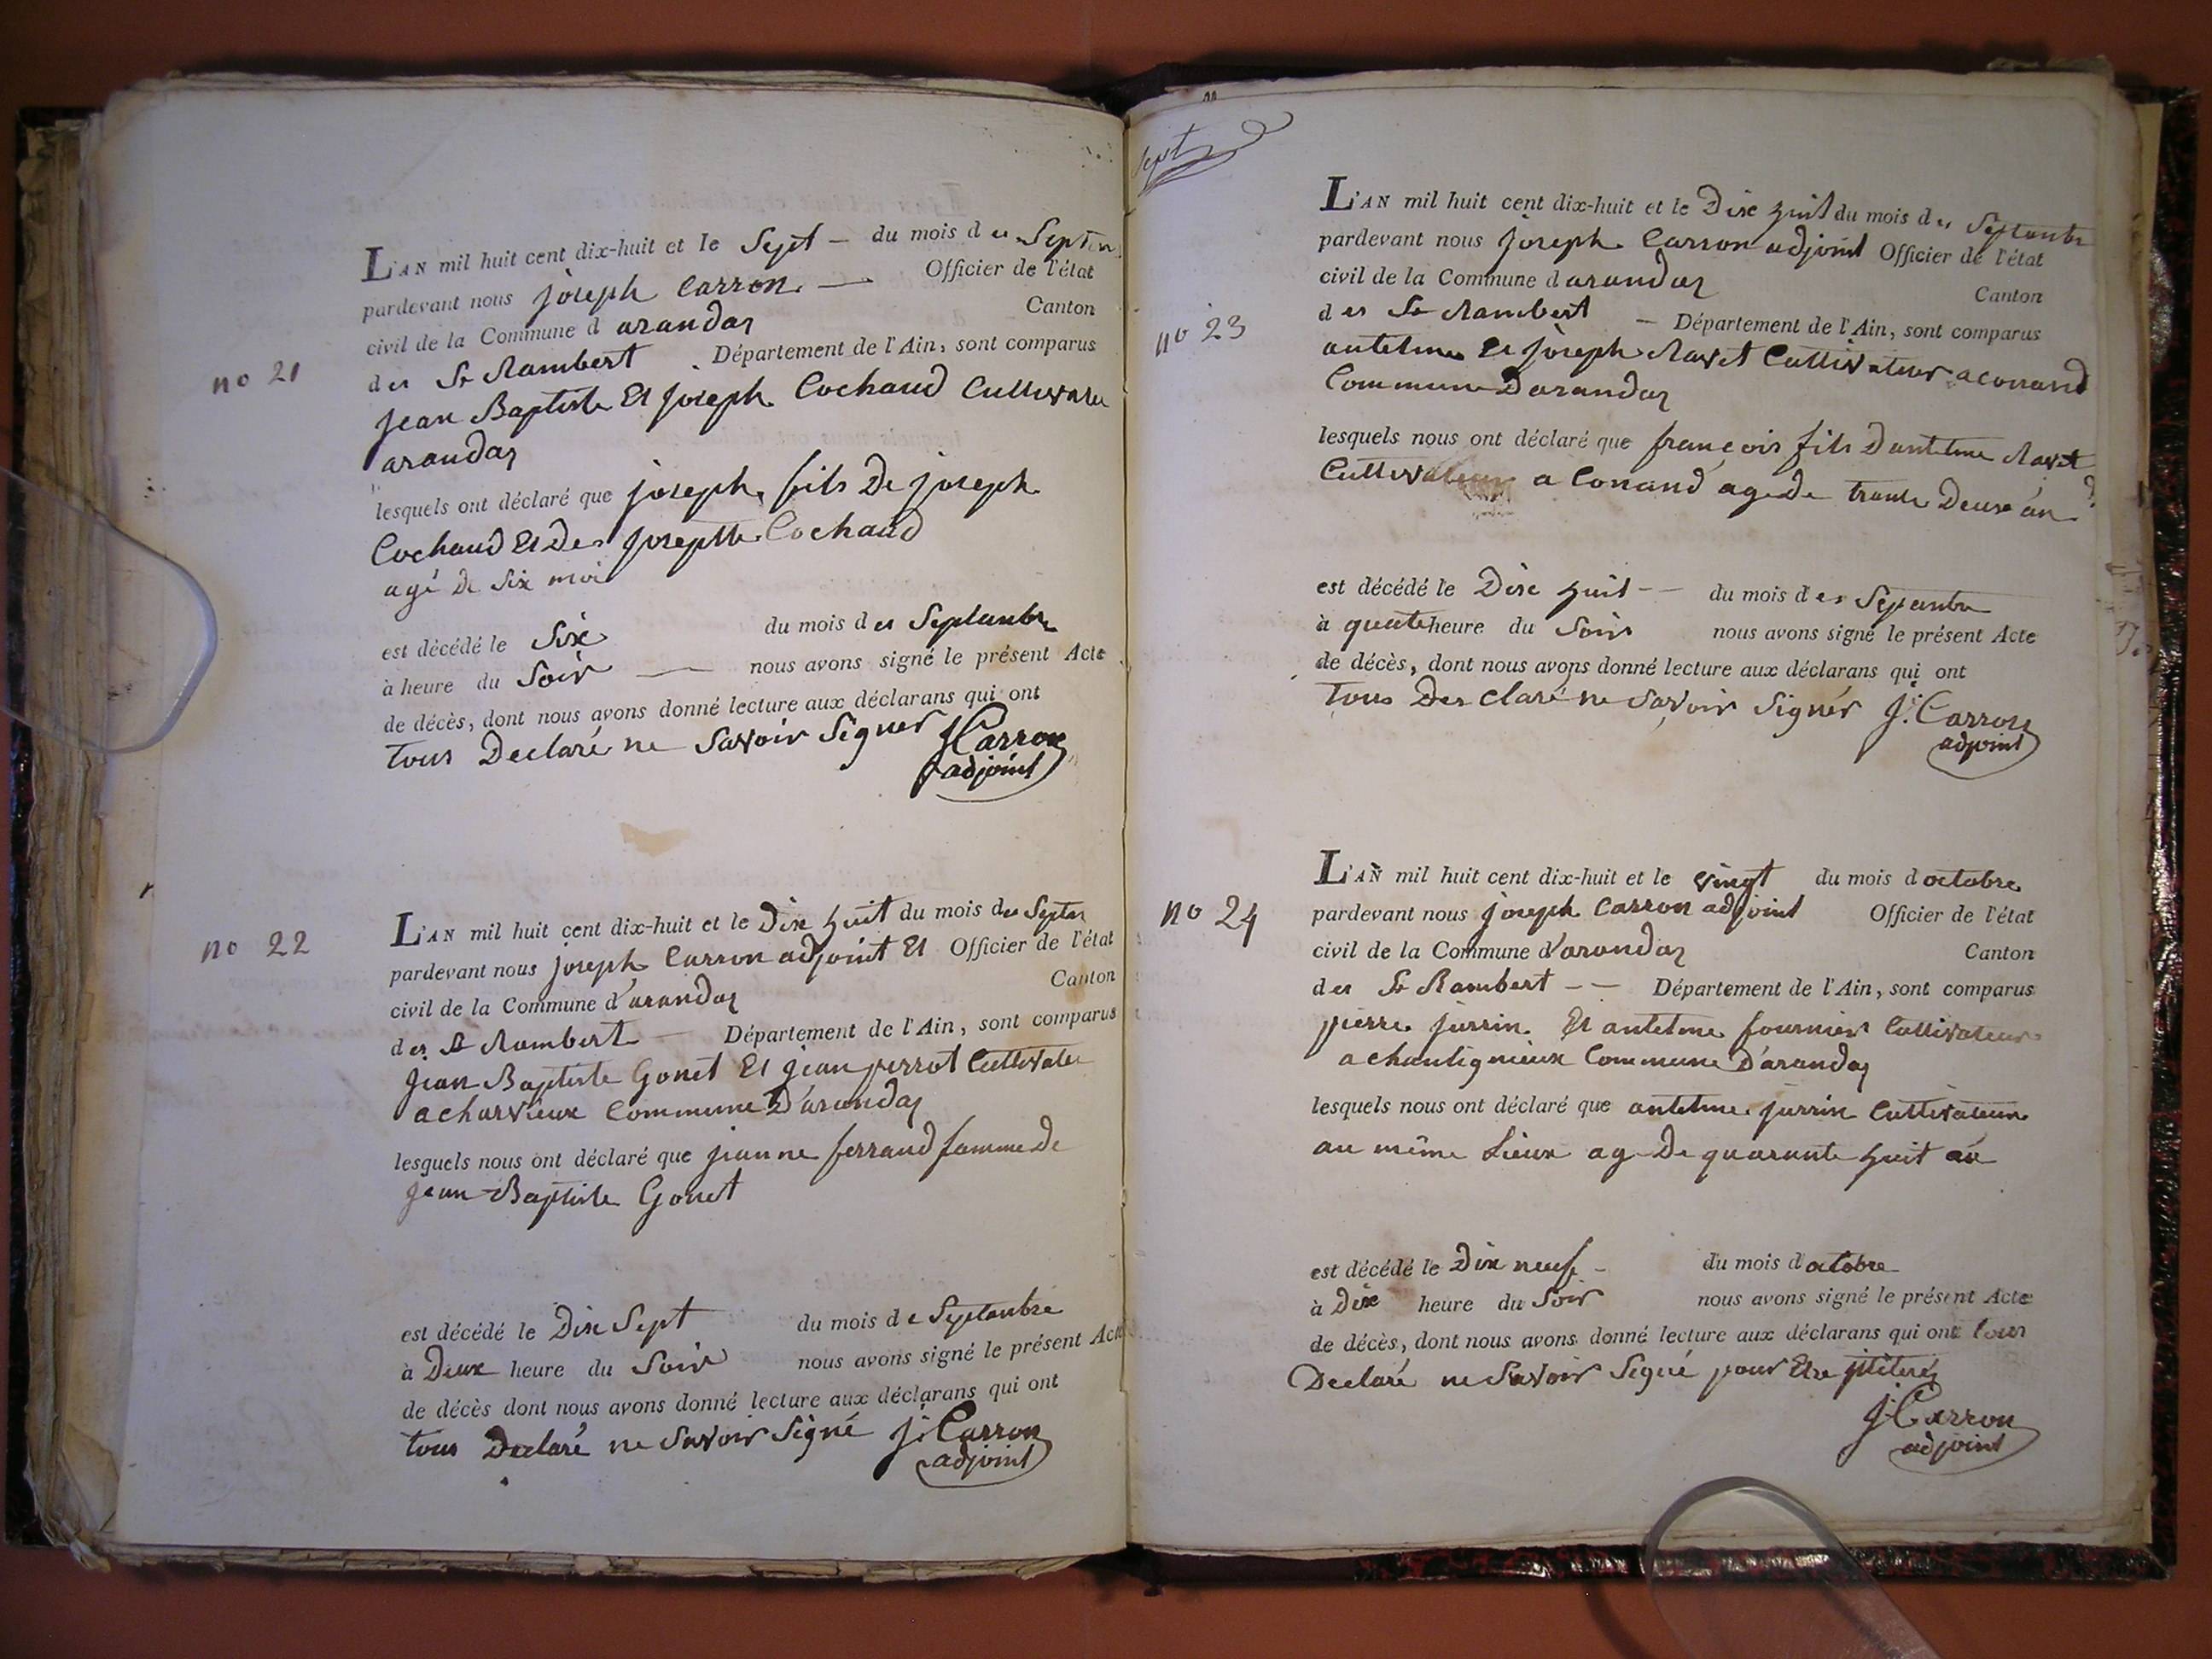 L'AN mil huit cent dix-huit et le Sept — du mois d es Septem
pardevant nous joseph Carron — Officier de l'état
civil de la Commune d arandas Canton
des St Rambert Département de l'Ain, sont comparus
no 21
jean Baptiste Et joseph Cochaud Cultivateu
arandas
lesquels ont déclaré que joseph fils De joseph
Cochaud Et Des josephte Cochaud
agé de Six moi
est décédé le Six du mois d es Septanbre
à heure du Soir — nous avons signé le présent Acte
de décès, dont nous avons donné lecture aux déclarans qui ont
tous Declaré ne Savoir Signer J Carron
adjoint
L'AN mil huit cent dix-huit et le Dix huit du mois des Septen
no 22
pardevant nous joseph Carron adjoint Et Officier de l'état
civil de la Commune d'arandas Canton
des St Rambert — Département de l'Ain, sont comparus
jean Baptiste Gonet Et jean perrot Cultivateu
a charvieux Commune D'arandas
lesquels nous ont déclaré que jeanne ferrand famme de
jean Baptiste Gonet
est décédé le Dix Sept du mois de Septanbre
à Deux heure du Soir nous avons signé le présent Acte
de décès dont nous avons donné lecture aux déclarans qui ont
tous Declaré ne Savoir Signé j. Carron
adjoint
Sept
L'AN mil huit cent dix-huit et le Dixe huit du mois des Septanbr
pardevant nous joseph Carron adjoint Officier de l'état
civil de la Commune d arandas Canton
no 23
d es St Rambert — Département de l'Ain, sont comparus
antelme Et joseph Ravet Cultivateur a conand
Commune Darandas
lesquels nous ont déclaré que françois fils Dantelme Ravet
Cultivateur a Conand age De trante Deux an
est décédé le Dixe huit — du mois d es Sepanbre
à quatre heure du Soir nous avons signé le présent Acte
de décès, dont nous avons donné lecture aux déclarans qui ont
tous Des claré ne Savoir Signér J. Carron
adjoint
L'AN mil huit cent dix-huit et le vingt du mois d octobre
no 24
pardevant nous joseph Carron adjoint Officier de l'état
civil de la Commune d'arandas Canton
des St Rambert — — Département de l'Ain, sont comparus
pierre jurrin Et antelme fournier Cultivateur
a chantignieux Commune D'arandas
lesquels nous ont déclaré que antelme jurrin Cultivateur
au même Lieux ag De quarante huit an
est décédé le Dix neufe — du mois d'actobre
à Dixe heure du Soir nous avons signé le présent Acte
de décès, dont nous avons donné lecture aux déclarans qui ont tous
Declaré ne Savoir Signé pour Etre
J. Carron
adjoint